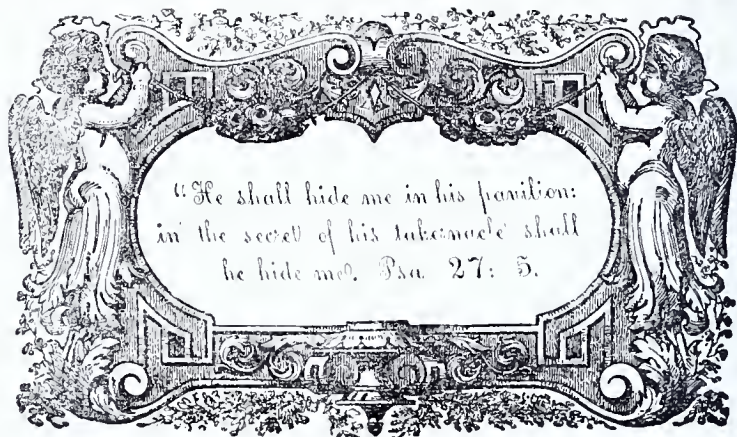 "He shall hide me in his pavilion:
in the secret of his tabernacle shall
he hide me. Psa. 27: 5.